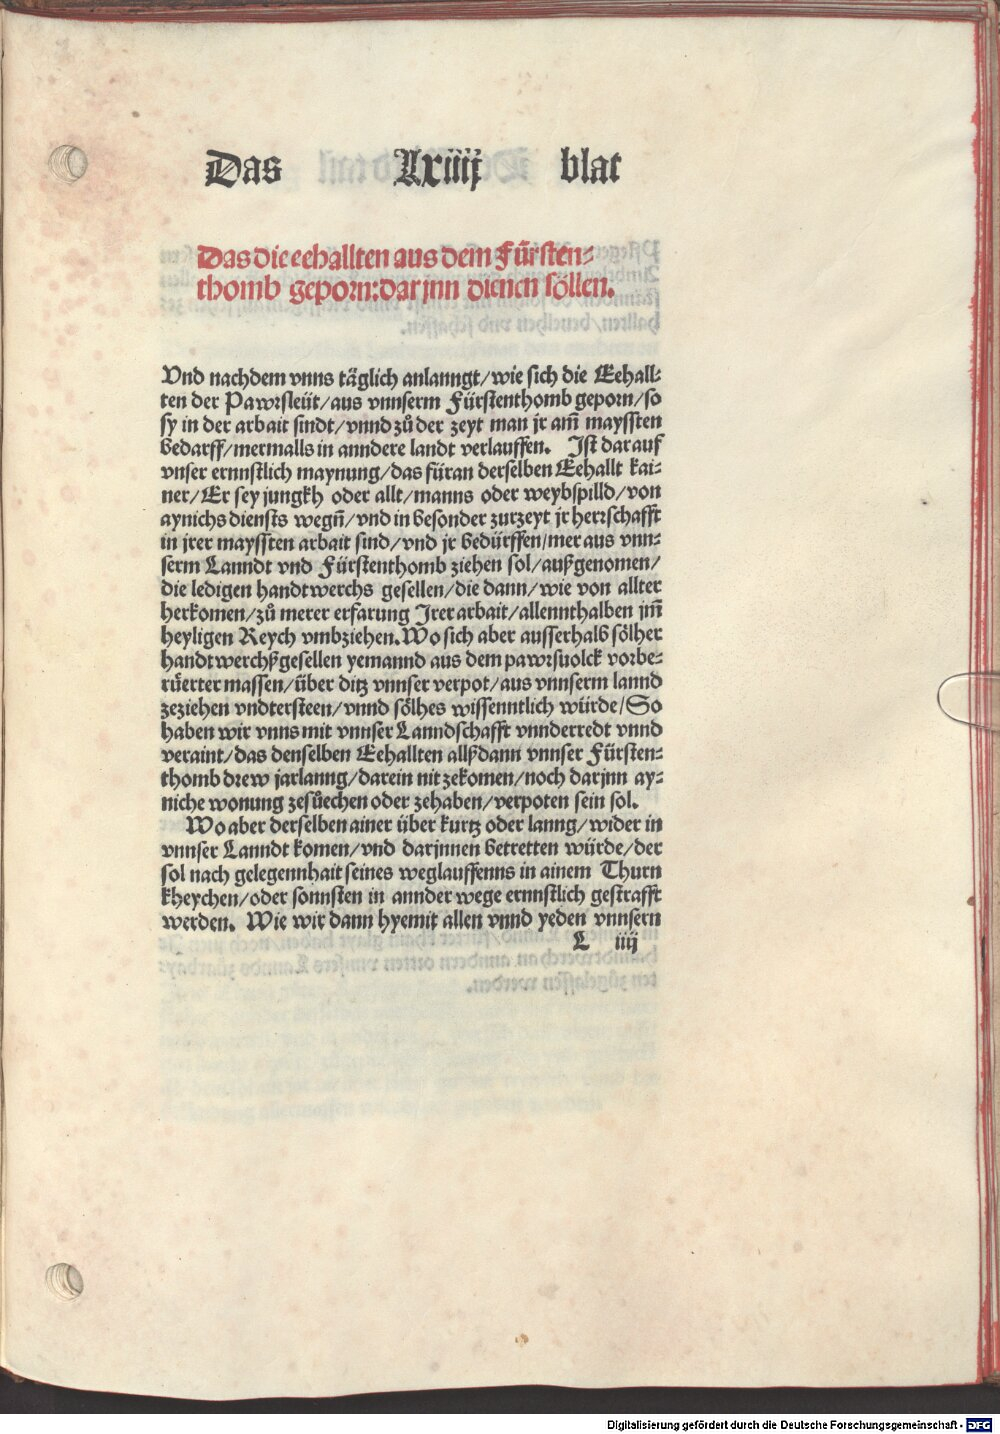 Das Lxiiij blat
Das die eehallten aus dem Fürsten⸗
thomb geporn: dar jnn dienen söllen.
Vnd nachdem vnns täglich anlanngt/wie sich die Eehall⸗
ten der Pawrsleüt/aus vnnserm Fürstenthomb geporn/so
sy in der arbait sindt/vnnd zů der zeyt man jr am̃ maysſten
bedarff/mermalls in anndere landt verlauffen. Ist darauf
vnser ernnstlich maynung/das füran derselben Eehallt kai⸗
ner/Er sey jungkh oder allt/manns oder weybspilld/von
aynichs diensts wegn̄/vnd in besonder zurzeyt jr herrschafft
in jrer maysſten arbait sind/vnd jr bedürffen/mer aus vnn⸗
serm Lanndt vnd Fürstenthomb ziehen sol/außgenomen/
die ledigen handtwerchs gesellen/die dann/wie von allter
herkomen/zů merer erfarung Jrer arbait/allennthalben jm̄
heyligen Reych vmbziehen. Wo sich aber ausserhalb sölher
handtwerchßgesellen yemannd aus dem pawrsuolck vorbe⸗
rüerter massen/über ditz vnnser verpot/aus vnnserm lannd
zeziehen vndtersteen/vnnd sölhes wissenntlich würde/So
haben wir vnns mit vnnser Lanndschafft vnnderredt vnnd
veraint/das denselben Eehallten allßdann vnnser Fürsten⸗
thomb drew jarlanng/darein nit zekomen/noch darjnn ay⸗
niche wonung zesůechen oder zehaben/verpoten sein sol.
Wo aber derselben ainer über kurtz oder lanng/wider in
vnnser Lanndt komen/vnd darjnnen betretten würde/der
sol nach gelegennhait seines weglauffenns in ainem Thurn
kheychen/oder sonnsten in annder wege ernnstlich gestrafft
werden. Wie wir dann hyemit allen vnnd yeden vnnsern
L iiij
Digitalisierung gefördert durch die Deutsche Forschungsgemeinschaft - DFG